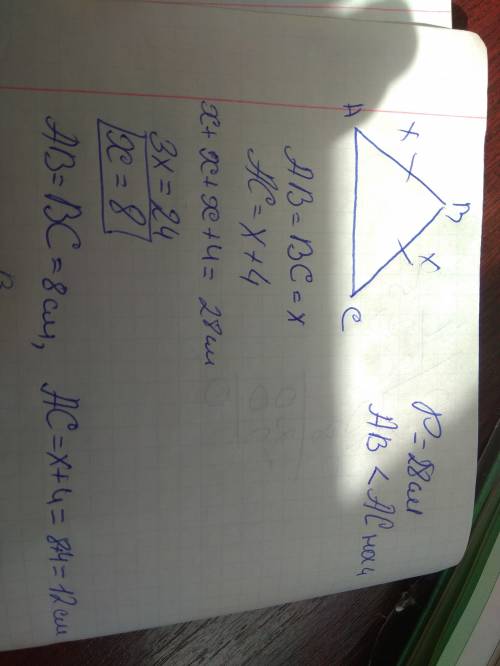 B
x x
A C
P=28см
AB < AC на 4
AB = BC = x
AC = x + 4
x + x + x + 4 = 28см
3x = 24
x = 8
AB = BC = 8см, AC = x + 4 = 8+4 = 12см